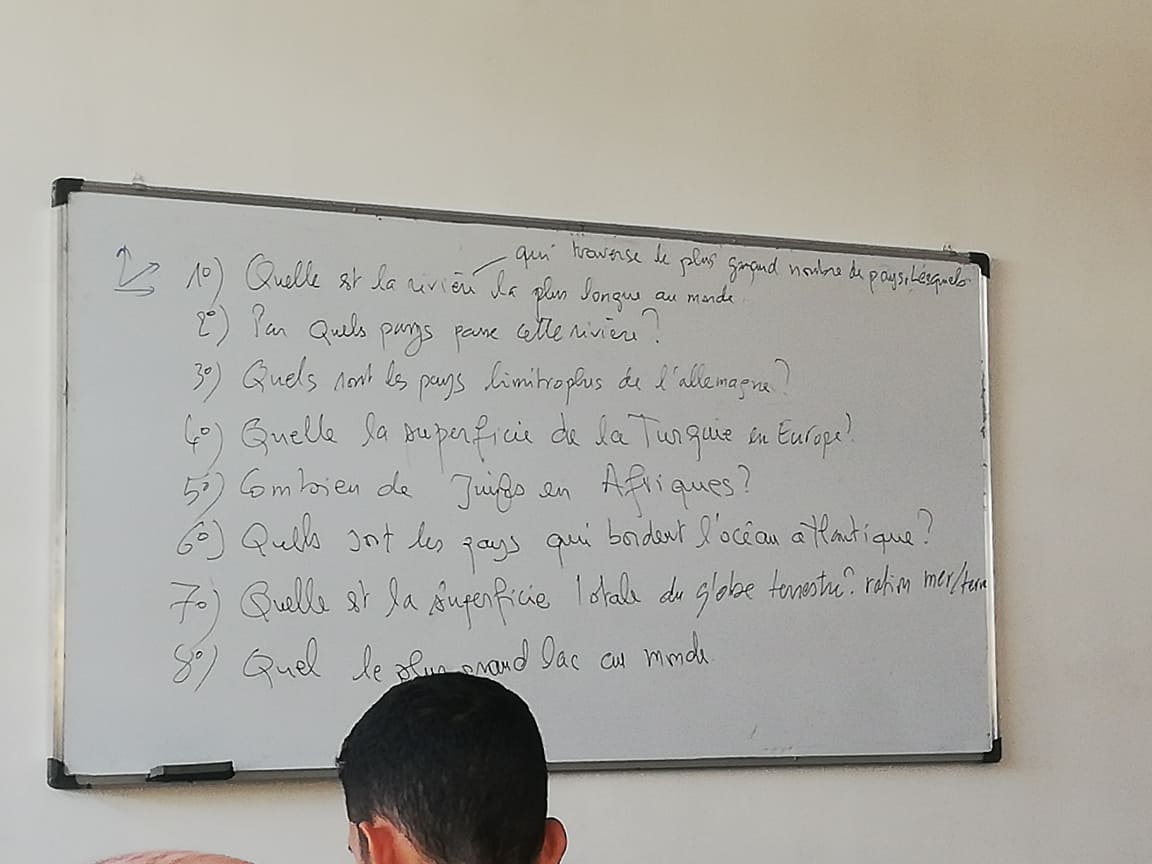 qui traverse le plus grand nombre de pays. Lesquels
1°) Quelle est la rivière la plus longue au monde
2°) Par Quels pays passe cette rivière?
3°) Quels sont les pays limitrophes de l'allemagne?
4°) Quelle la superficie de la Turquie en Europe?
5°) Combien de Juifs en Afriques?
6°) Quels sont les pays qui bordent l'océan atlantique?
7°) Quelle est la superficie totale du globe terrestre? ration mer/terre
8°) Quel le plus grand lac au monde